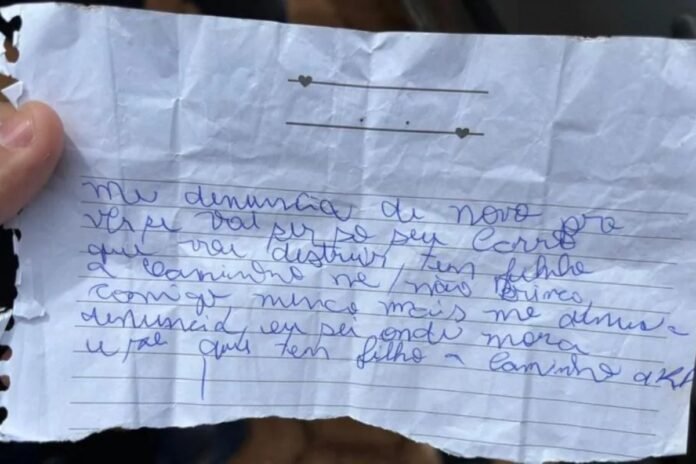 me denuncia de novo pra
ver se vai ser so seu carro
que vai distruir, tem filho
a caminho né, não brinca
comigo nunca mais me denun-
denuncia, eu sei onde mora
e sei que tem filho a caminho